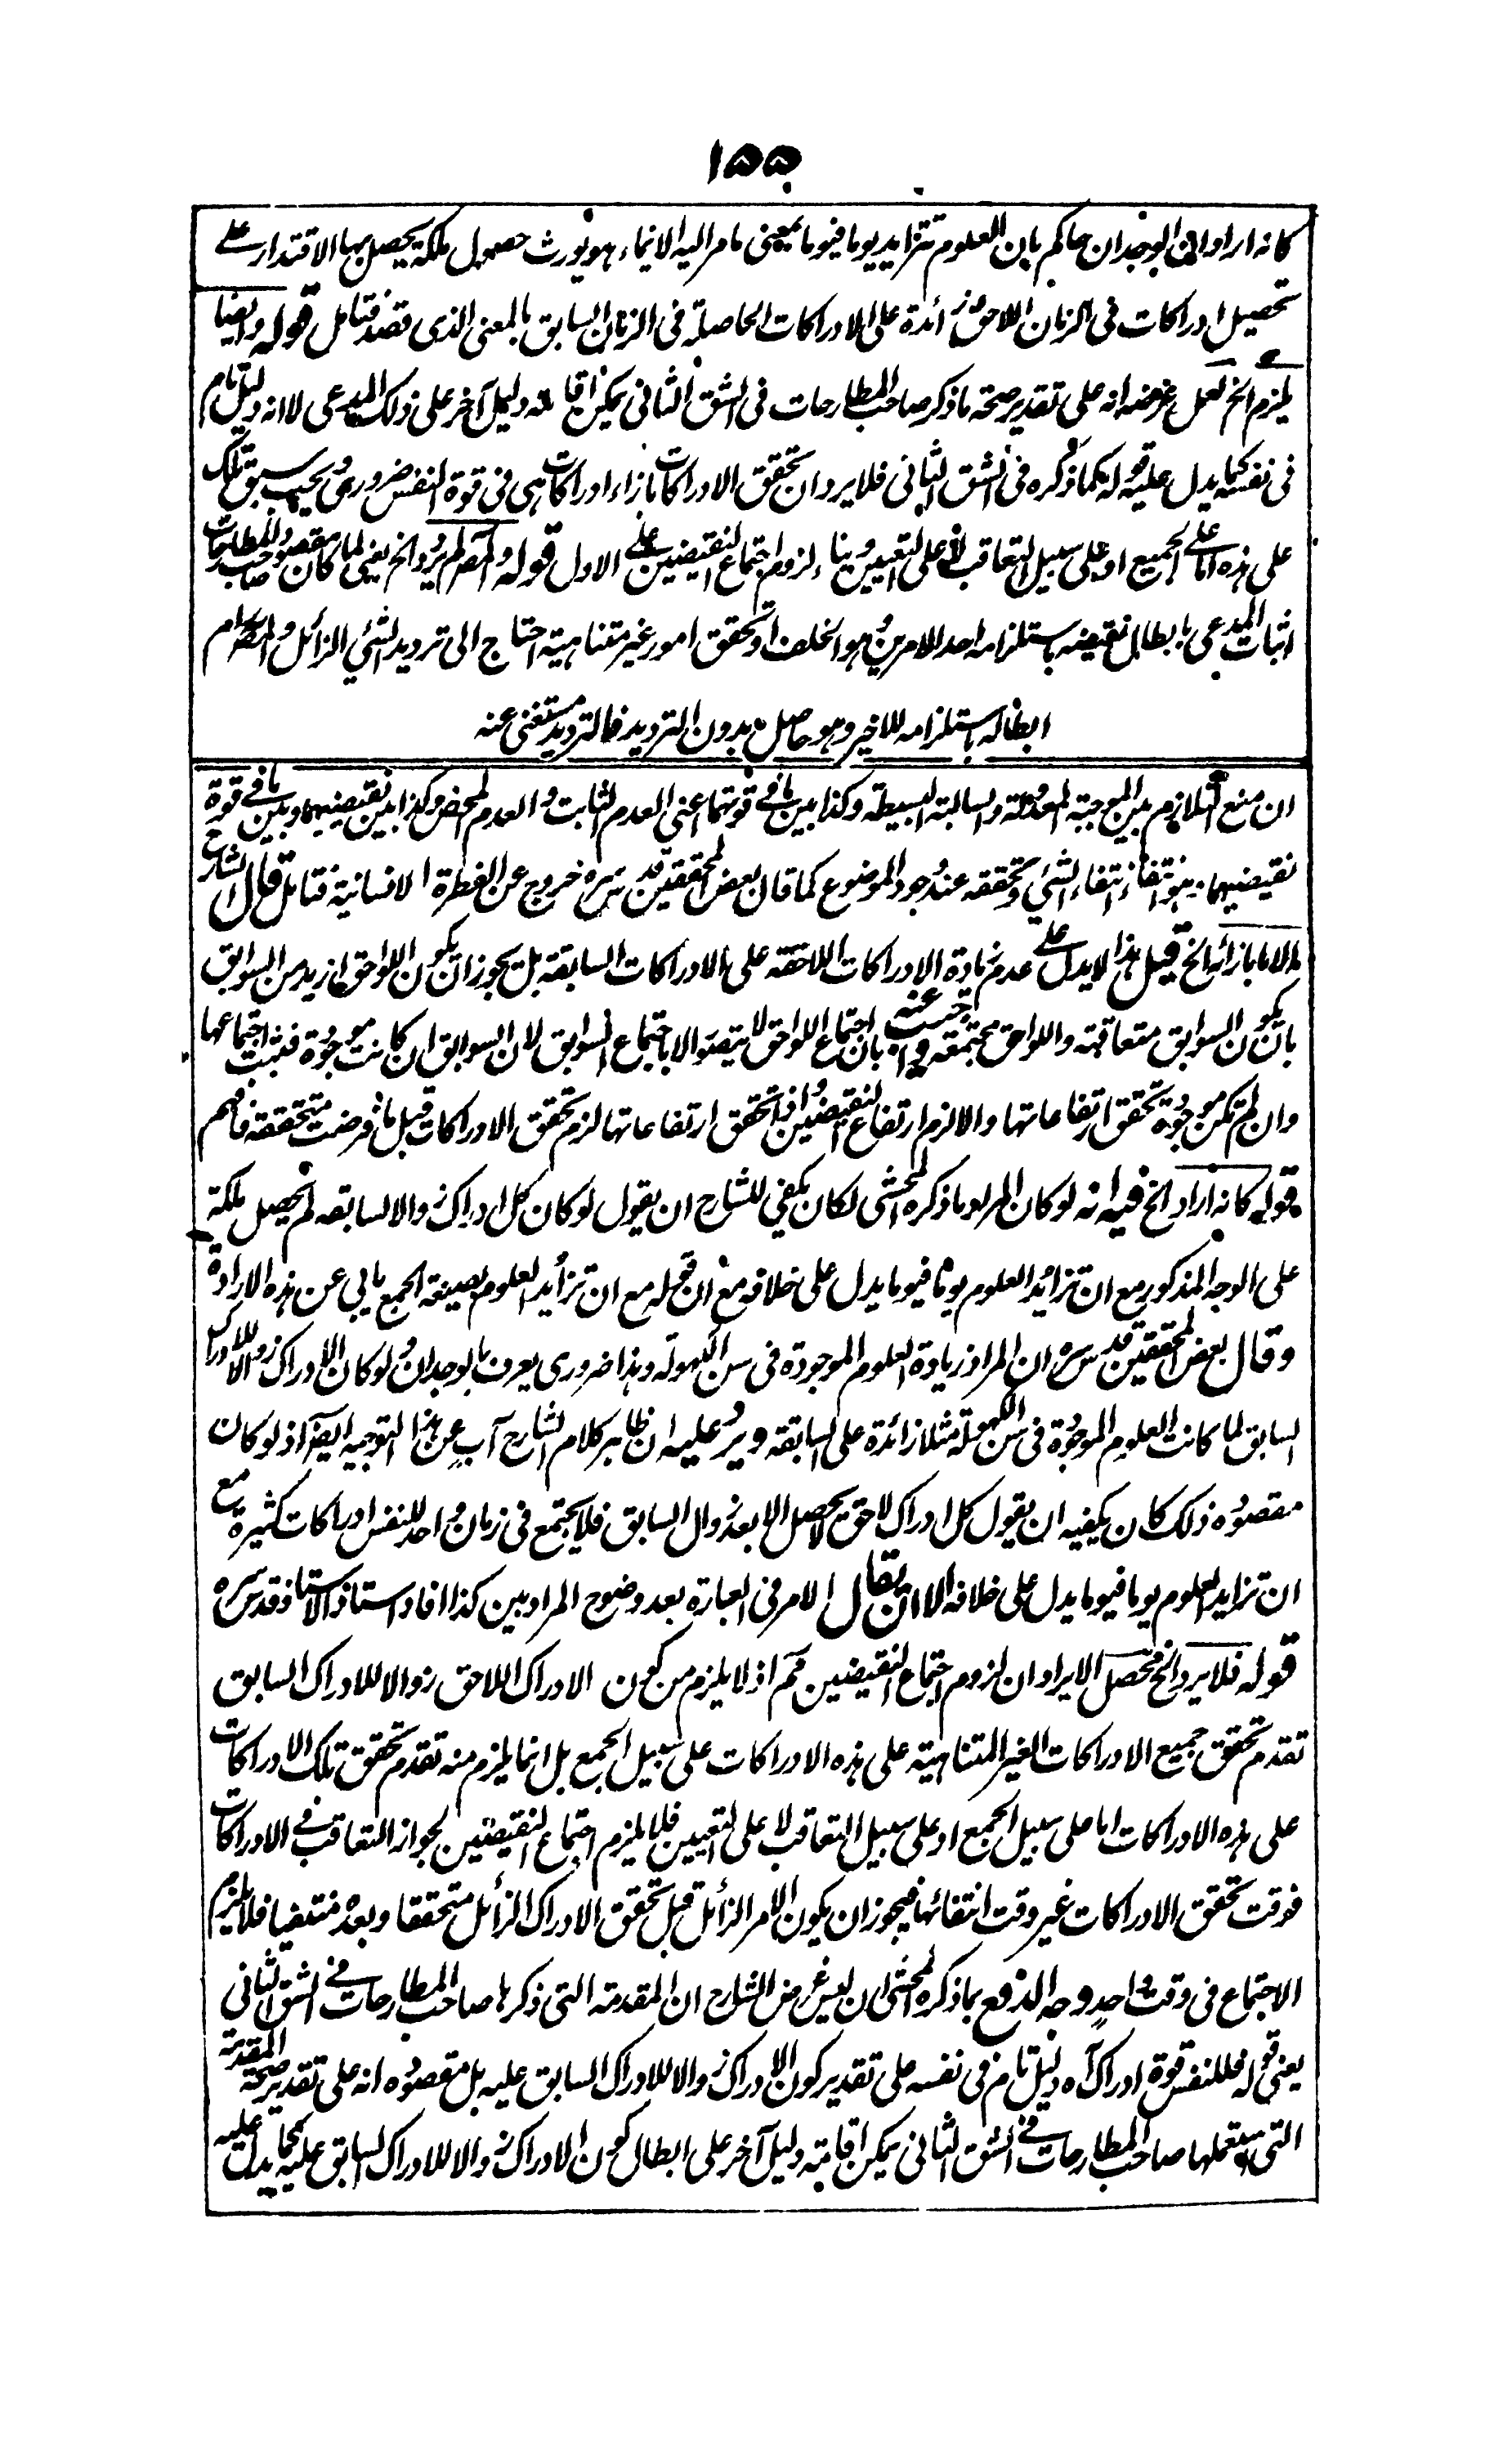 ١٥٥
كانه اراد ان الوجدان حاكم بان العلوم تتزايد يوما فيوما بمعنى ما مر اليه الايماء وهو يورث حصول ملكة يحصل بها الاقتدار على
تحصيل ادراكات فى الزمان اللاحق زائدة على الادراكات الحاصلة فى الزمان السابق بالمعنى الذى قصد فتامل قوله وايضا
يلزم الخ لعل غرضه انه على تقدير صحة ما ذكره صاحب المطارحات فى الشق الثانى يمكن اقامة دليل آخر على ذلك المدعى لا انه دليل تام
فى نفسه كما يدل عليه قوله كما ذكره فى الشق الثانى فلا يرد ان تحقق الادراكات بازاء ادراكات هى فى قوة النفس ضرورى يجب سبق تلك
على هذه اما على الجميع او على سبيل التعاقب لا على التعيين وبناء لزوم اجتماع النقيضين على الاول قوله والقصر لم يزد الخ يعنى لما كان مقصود صاحب المطارحات
اثبات المدعى بابطال نقيضه باستلزامه احد الامرين وهو الخلف او تحقق امور غير متناهية احتاج الى ترديد الشئ الزائل و
ابطاله باستلزامه للاخير وهو حاصل بدون الترديد فالترديد مستغنى عنه
ان منع التلازم بين الموجبة المعدولة والسالبة البسيطة وكذا بين ما فى قوتهما اعنى العدم الثابت والعدم المحض وكذا بين نقيضيهما وبين ما فى قوة
نقيضيهما وهو انتفاء انتفاء الشئ وتحققه عند وجود الموضوع كما قان بعض المحققين قدس سره خروج عن الفطرة الانسانية فتامل قال الشارح
والا ما بازائه الخ قيل هذا لا يدل على عدم زيادة الادراكات اللاحقة على الادراكات السابقة بل يجوز ان يكون اللواحق ازيد من السوابق
بان يكون السوابق متعاقبة واللواحق مجتمعة واجيب عنه بان اجتماع اللواحق لا يتصور الا باجتماع السوابق لان السوابق ان كانت موجودة فثبت اجتماعها
وان لم تكن موجودة تحقق ارتفاعاتها والا لزم ارتفاع النقيضين واذا تحقق ارتفاعاتها لزم تحقق الادراكات قبل ما فرضت متحققة فافهم
قوله كانه اراد الخ فيه انه لو كان المراد ما ذكره المحشى لكان يكفى للشارح ان يقول لو كان كل ادراك زوالا لسابقه لم تحصل ملكة
على الوجه المذكور مع ان تزايد العلوم يوما فيوما يدل على خلافه مع ان قوله مع ان تزايد العلوم بصيغة الجمع يابى عن هذه الارادة
وقال بعض المحققين قدس سره ان المراد زيادة العلوم الموجودة فى سن الكهولة وهذا ضرورى يعرف بالوجدان ولو كان الادراك زوالا للادراك
السابق لما كانت العلوم الموجودة فى سن الكهولة مثلا زائدة على السابقة ويرد عليه ان ظاهر كلام الشارح آب عن هذا التوجيه ايضا اذ لو كان
مقصوده ذلك كان يكفيه ان يقول كل ادراك لاحق لا يحصل الا بعد زوال السابق فلا يجتمع فى زمان واحد للنفس ادراكات كثيرة مع
ان تزايد العلوم يوما فيوما يدل على خلافه الا ان يقال الامر فى العبارة بعد وضوح المراد بين كذا افاد استاذ الاستاذ قدس سره
قوله فلا يرد الخ محصل الايراد ان لزوم اجتماع النقيضين مم اذ لا يلزم من كون الادراك اللاحق زوالا للادراك السابق
تقدم تحقق جميع الادراكات الغير المتناهية على هذه الادراكات على سبيل الجمع بل انما يلزم منه تقدم تحقق تلك الادراكات
على هذه الادراكات اما على سبيل الجمع او على سبيل التعاقب لا على التعيين فلا يلزم اجتماع النقيضين لجواز التعاقب فى الادراكات
فوقت تحقق الادراكات غير وقت انتفائها فيجوز ان يكون الامر الزائل قبل تحقق الادراك الزائل متحققا وبعده منتفيا فلا يلزم
الاجتماع فى وقت واحد وجه الدفع بما ذكره المحشى ان ليس غرض الشارح ان المقدمة التى ذكرها صاحب المطارحات فى الشق الثانى
يعنى قوله فللنفس قوة ادراك اه دليل تام فى نفسه على تقدير كون الادراك زوالا للادراك السابق عليه بل مقصوده انه على تقدير صحة المقدمة
التى يستعملها صاحب المطارحات فى الشق الثانى يمكن اقامة دليل آخر على ابطال كون الادراك زوالا للادراك السابق عليه كما يدل عليه